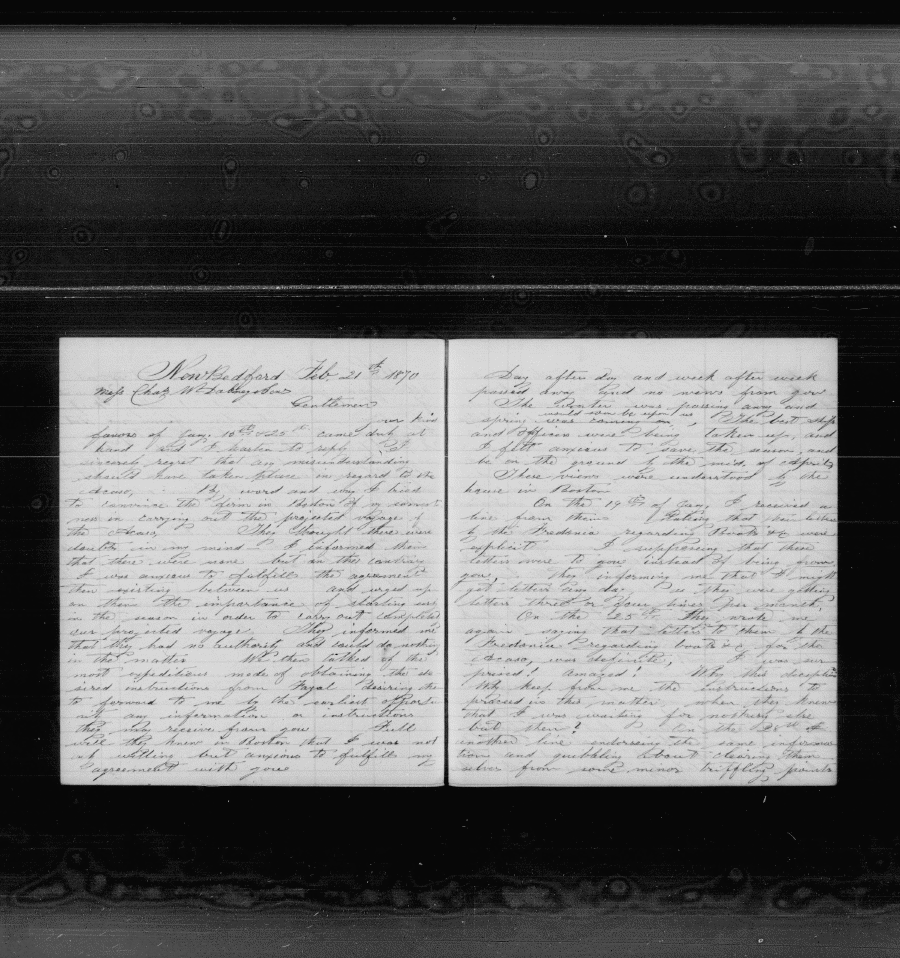 New Bedford Feb. 21st 1870
Mess Chas. W. Dabney & Sons
Gentlemen
Your kind
favors of Jany. 15th & 25th came duly at
hand and I hasten to reply I
sincerely regret that any misunderstanding
should have taken place in regard to the
By word and I tried
to convince the firm in Boston of my
in carrying out the projected voyage of
the They thought there were
doubts in my mind I informed them
that there were none but on the contrary
I was anxious to fulfill the agreement
then existing between us and urged up
on them the importance of starting
in the season in order to carry out completed
our projected voyage. They informed me
that they had no authority and could do nothing
in the matter We then talked of the
most expeditious mode of obtaining the de
sired instructions from Fayal desiring
to forward to me by the earliest opportu
nity any information or instructions
they may receive from you Full
well they knew in Boston that I was not
willing but anxious to fulfill my
agreement with you
Day after day and week after week
passed away and no news from you
The winter was passing away and
would soon be upon us
spring was coming on, The best ships
and officers were being taken up, and
I felt anxious to save the season, and
be on the ground by the mid. of April
These views were understood by the
house in Boston
On the 19th of Jan. I received a
line from them Stating that
by the Fredonia regarding &c were
explicit I supposing that these
letters were to you instead of being from
you, they informing me that I might
get letters any day, as they were getting
letters three or four times per month,
On the 25th they wrote me
again saying that letters to them by the
Fredonia regarding boats &c for the
was definite, I was sur
prised! amazed! Why this deception
Why keep from me the instructions to
proceed in this matter when they knew
that I was waiting for nothing else
but them! On the 28th
another line endorsing the same informa
tion and quibbling about clearing them
selves from some minor triffling points